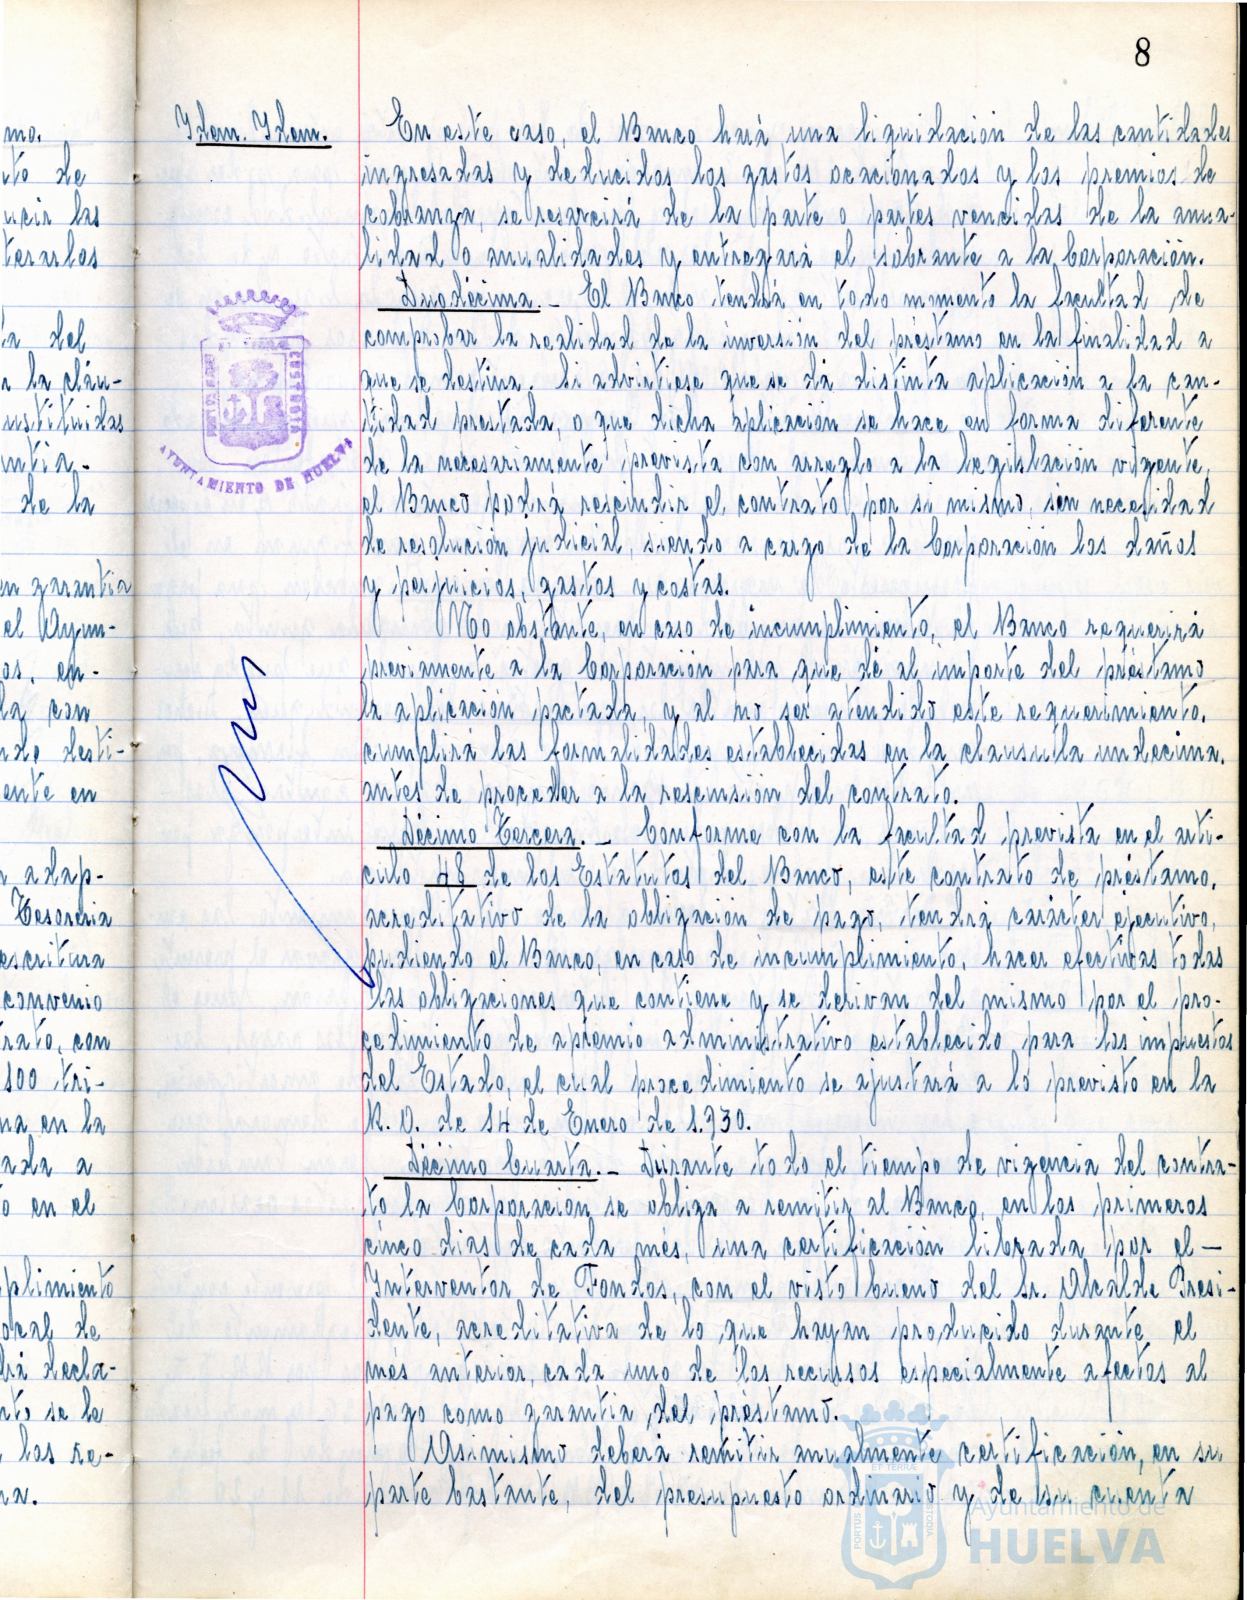 8
mo.
to de
ucir las
terarlos
ta del
n la cláu-
ustituidas
ntia.
de la
en garantia
el Ayun-
os, en-
la con
nde desti-
ente en
n adap-
Tesoreria
escritura
convenio
rato, con
100 tri-
na en la
ada a
o en el
plimiento
ocal de
drá decla-
nto se le
los re-
na.
Idem. Idem.
PORTUS MARIS ET TERRAE CUSTODIA
AYUNTAMIENTO DE HUELVA
En este caso, el Banco hará una liquidación de las cantidades
ingresadas y deducidos los gastos ocacionados y los premios de
cobranza, se resarcirá de la parte o partes vencidas de la anua-
lidad o anualidades y entregará el sobrante a la Corporación.
Duodécima.- El Banco tendrá en todo momento la facultad de
comprobar la realidad de la inversión del préstamo en la finalidad a
que se destina. Si advirtiese que se dá distinta aplicación a la can-
tidad prestada, o que dicha aplicación se hace en forma diferente
de la necesariamente prevista con arreglo a la legislación vigente,
el Banco podrá rescindir el contrato por si mismo, sin necesidad
de resolución judicial, siendo a cargo de la Corporación los daños
y perjuicios, gastos y costas.
No obstante, en caso de incumplimiento, el Banco requerirá
previamente a la Corporación para que dé al importe del préstamo
la aplicación pactada, y al no ser atendido este requerimiento,
cumplirá las formalidades establecidas en la clausula undécima,
antes de proceder a la rescinsión del contrato.
Décimo Tercera.- Conforme con la facultad prevista en el arti-
culo 48 de los Estatutos del Banco, este contrato de préstamo,
acreditativo de la obligación de pago, tendrá carácter ejecutivo,
pudiendo el Banco, en caso de incumplimiento, hacer efectivas todas
las obligaciones que contiene y se derivan del mismo por el pro-
cedimiento de apremio administrativo establecido para los impuestos
del Estado, el cual procedimiento se ajustará a lo previsto en la
R. O. de 14 de Enero de 1.930.
Décimo Cuarta.- Durante todo el tiempo de vigencia del contra-
to la Corporación se obliga a remitir al Banco, en los primeros
cinco dias de cada més, una certificación librada por el -
Interventor de Fondos, con el visto bueno del Sr. Alcalde Presi-
dente, acreditativa de lo que hayan producido durante el
més anterior, cada uno de los recursos especialmente afectos al
pago como garantia del préstamo.
Asimismo deberá remitir anualmente certificación, en su
parte bastante, del presupuesto ordinario y de su cuenta
Ayuntamiento de
HUELVA